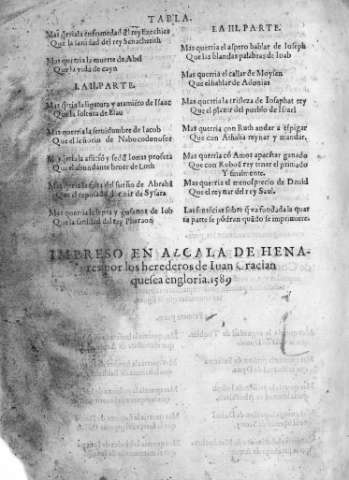 TABLA.
Mas q̃ria la enfermedad del rey Ezechias
Que la sanidad del rey Senacherib
Mas querria la muerte de Abel
Que la vida de cayn
LA II. PARTE.
Mas q̃ria la ligatura y de Isaac
Que la soltura de Esau
Mas querria la seruidumbre de Iacob
Que el señorio de Nabucodonosor
Mas q̃ria la Ionas propheta
Que el abundante beuer de Loth
Mas q̃ria la falta del sueño de Abrahã
Que el reposado dormir de Sysara
Mas querria la lepra y gusanos de Iob
Que la sanidad del rey Pharaon
LA III. PARTE.
Mas querria el aspero hablar de Ioseph
Que las blandas palabras de Ioab
Mas querria el callar de Moysen
Que el hablar de Adonias
Mas querria la tristeza de Iosaphat rey
Que el plazer del pueblo de Israel
Mas querria con Ruth andar a espigar
Que con Athalia reynar y mandar,
Mas querria cõ Amos apacẽtar ganado
Que con Roboã rey tener el primado
Y finalmente.
Mas querria el menosprecio de Dauid
Que el reynar del rey Saul.
Las sobre q̃ va fundada la quar
ta parte se podran quãdo se imprimere.
IMPRESO EN ALCALA DE HENA-
res por los herederos de Iuan Gracian
que sea en gloria. 1589